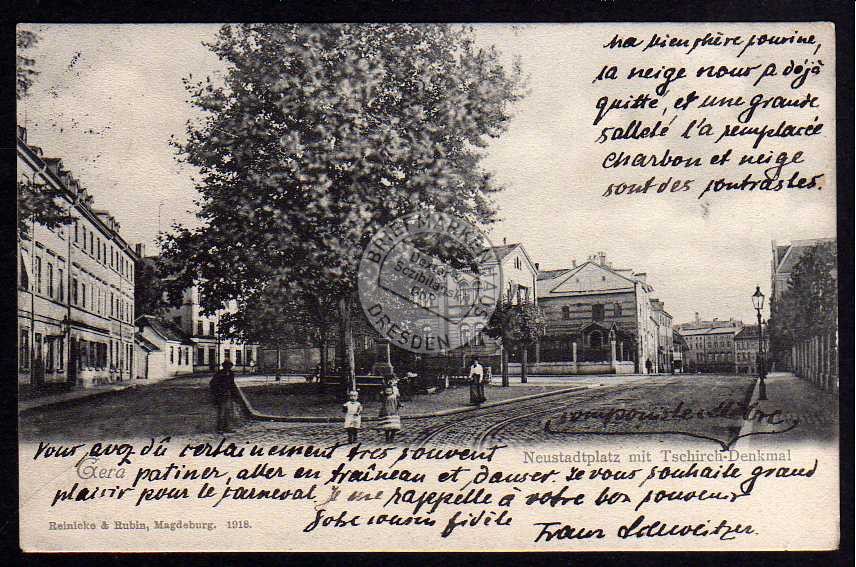 Ma bien chère cousine,
la neige nous a déjà
quitté, et une grande
salleté l'a remplacée
charbon et neige
sont des contrastes.
BRIEFMARKENHAUS
DRESDEN
componiste
Neustadtplatz mit Tschirch-Denkmal
Gera
Vous avez dû certainement très souvent
patiner, aller en traîneau et danser. Je vous souhaite grand
plaisir pour le carneval. Je me rappelle à votre bon souvenir
Votre cousin fidèle
Franz Schweitzer.
Reinicke & Rubin, Magdeburg. 1918.